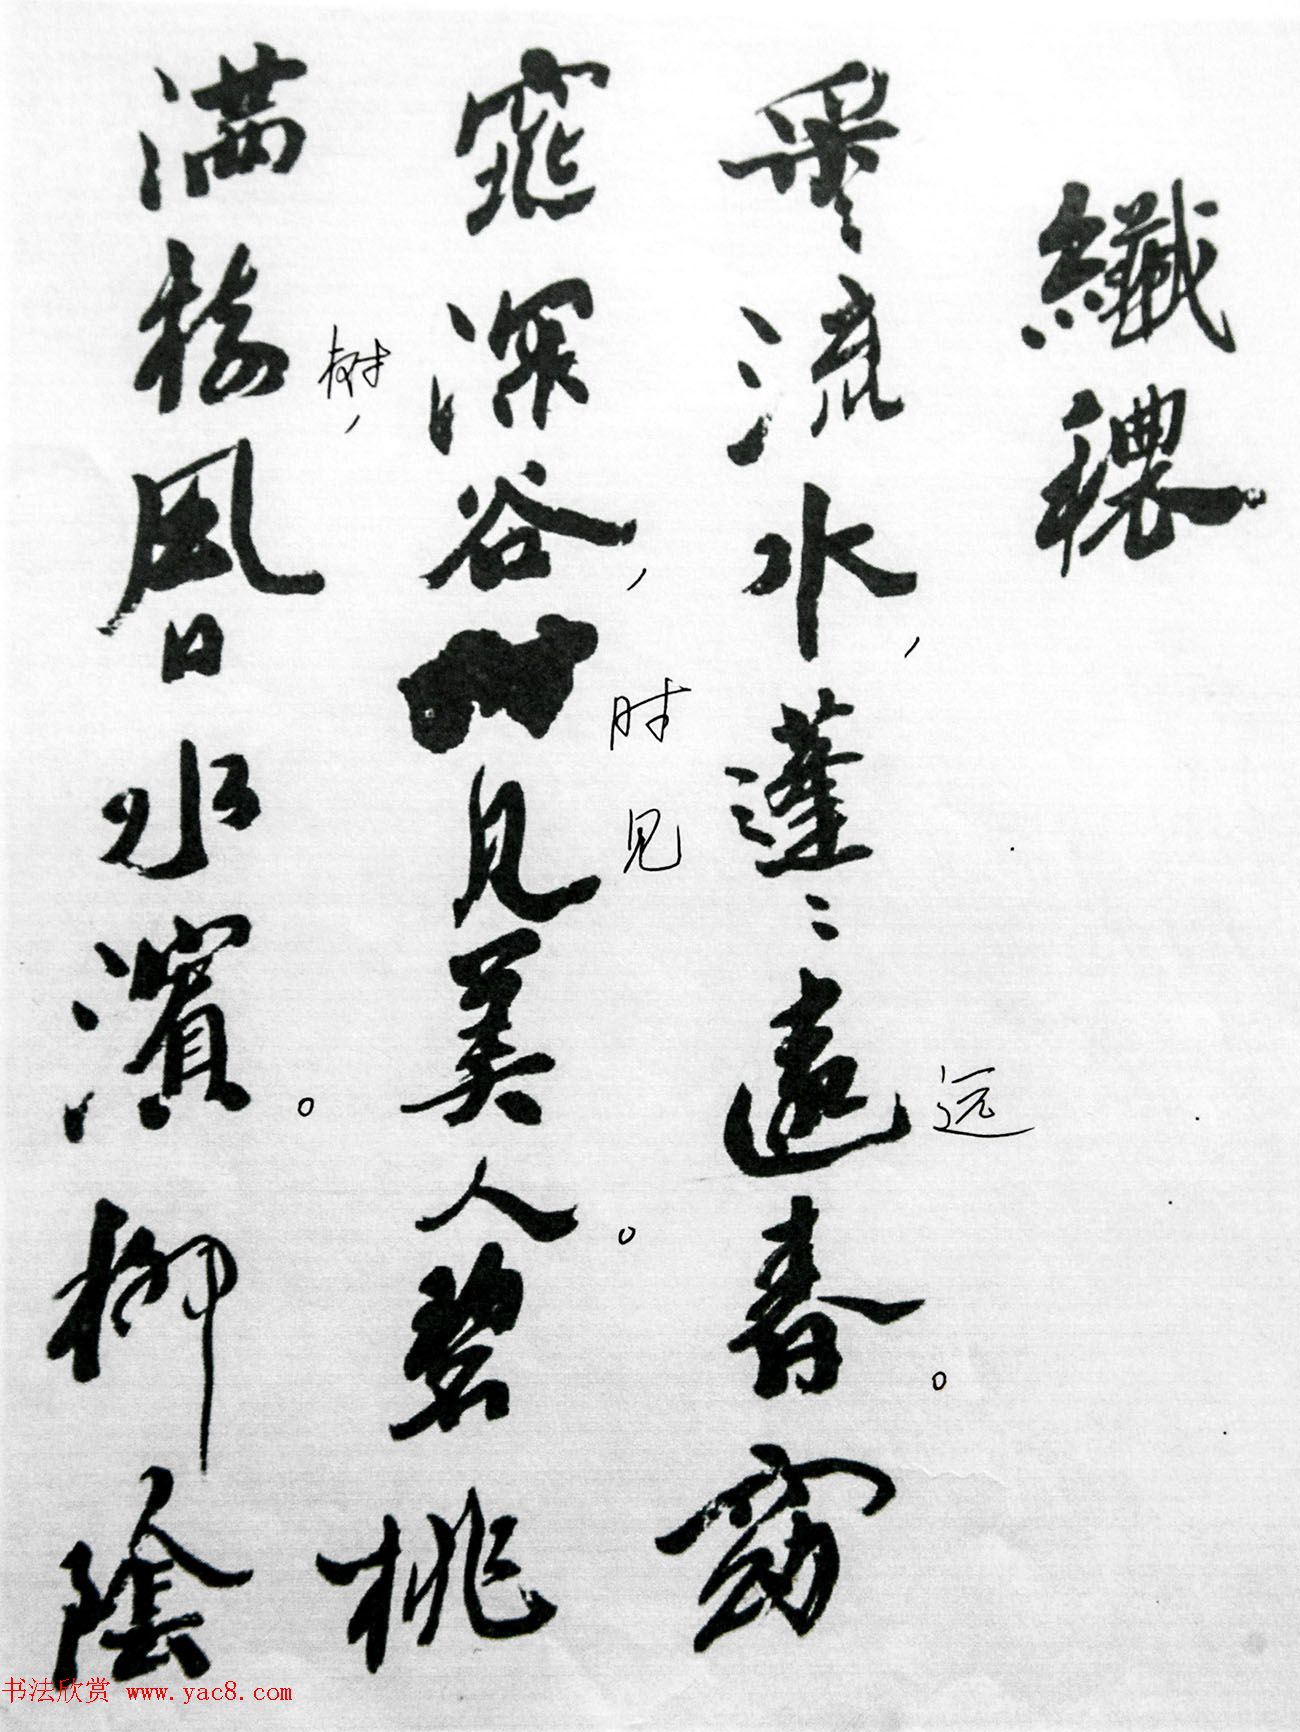 纖穠
采〻流水，蓬〻遠春。窈
远
窕深谷，見美人。碧桃
时
见
满樹風日水濱。柳陰
树，
书法欣赏 www.yac8.com